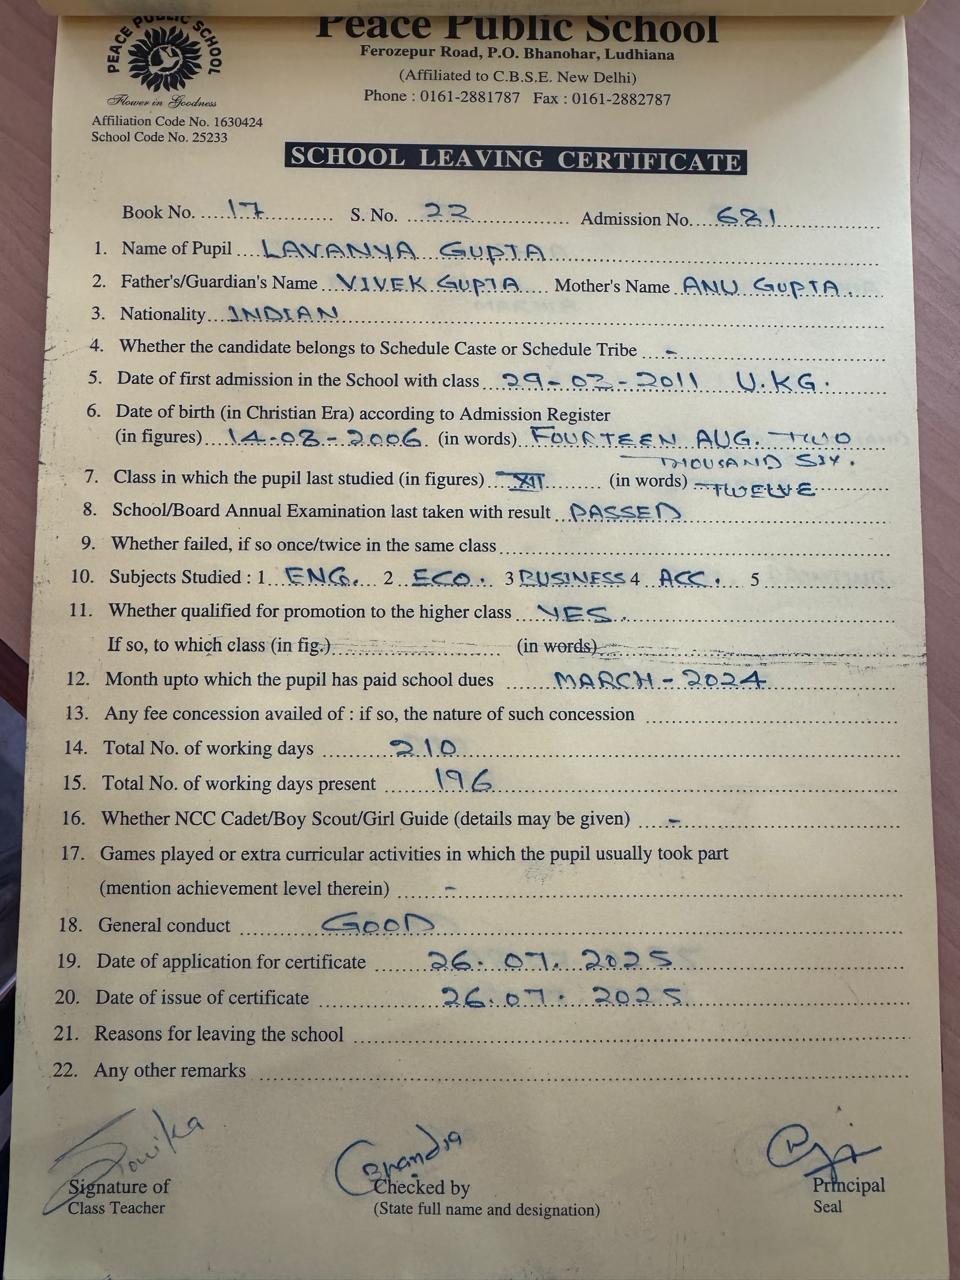 PEACE PUBLIC SCHOOL
Flower in Goodness
Affiliation Code No. 1630424
School Code No. 25233
Peace Public School
Ferozepur Road, P.O. Bhanohar, Ludhiana
(Affiliated to C.B.S.E. New Delhi)
Phone : 0161-2881787 Fax : 0161-2882787
SCHOOL LEAVING CERTIFICATE
Book No. 17 S. No. 22 Admission No. 681
1. Name of Pupil LAVANYA GUPTA
2. Father's/Guardian's Name VIVEK GUPTA Mother's Name ANU GUPTA.
3. Nationality INDIAN
4. Whether the candidate belongs to Schedule Caste or Schedule Tribe -
5. Date of first admission in the School with class 29-03-2011 U.KG.
6. Date of birth (in Christian Era) according to Admission Register
(in figures) 14-08-2006 (in words) FOURTEEN AUG. TWO
THOUSAND SIX.
7. Class in which the pupil last studied (in figures) XII (in words) TWELVE
8. School/Board Annual Examination last taken with result PASSED
9. Whether failed, if so once/twice in the same class
10. Subjects Studied : 1 ENG. 2 ECO. 3 BUSINESS 4 ACC. 5
11. Whether qualified for promotion to the higher class YES.
If so, to which class (in fig.) (in words)
12. Month upto which the pupil has paid school dues MARCH-2024
13. Any fee concession availed of : if so, the nature of such concession
14. Total No. of working days 210
15. Total No. of working days present 196
16. Whether NCC Cadet/Boy Scout/Girl Guide (details may be given) -
17. Games played or extra curricular activities in which the pupil usually took part
(mention achievement level therein) -
18. General conduct GOOD
19. Date of application for certificate 26.07.2025
20. Date of issue of certificate 26.07.2025
21. Reasons for leaving the school
22. Any other remarks
Signature of
Class Teacher
Checked by
(State full name and designation)
Principal
Seal